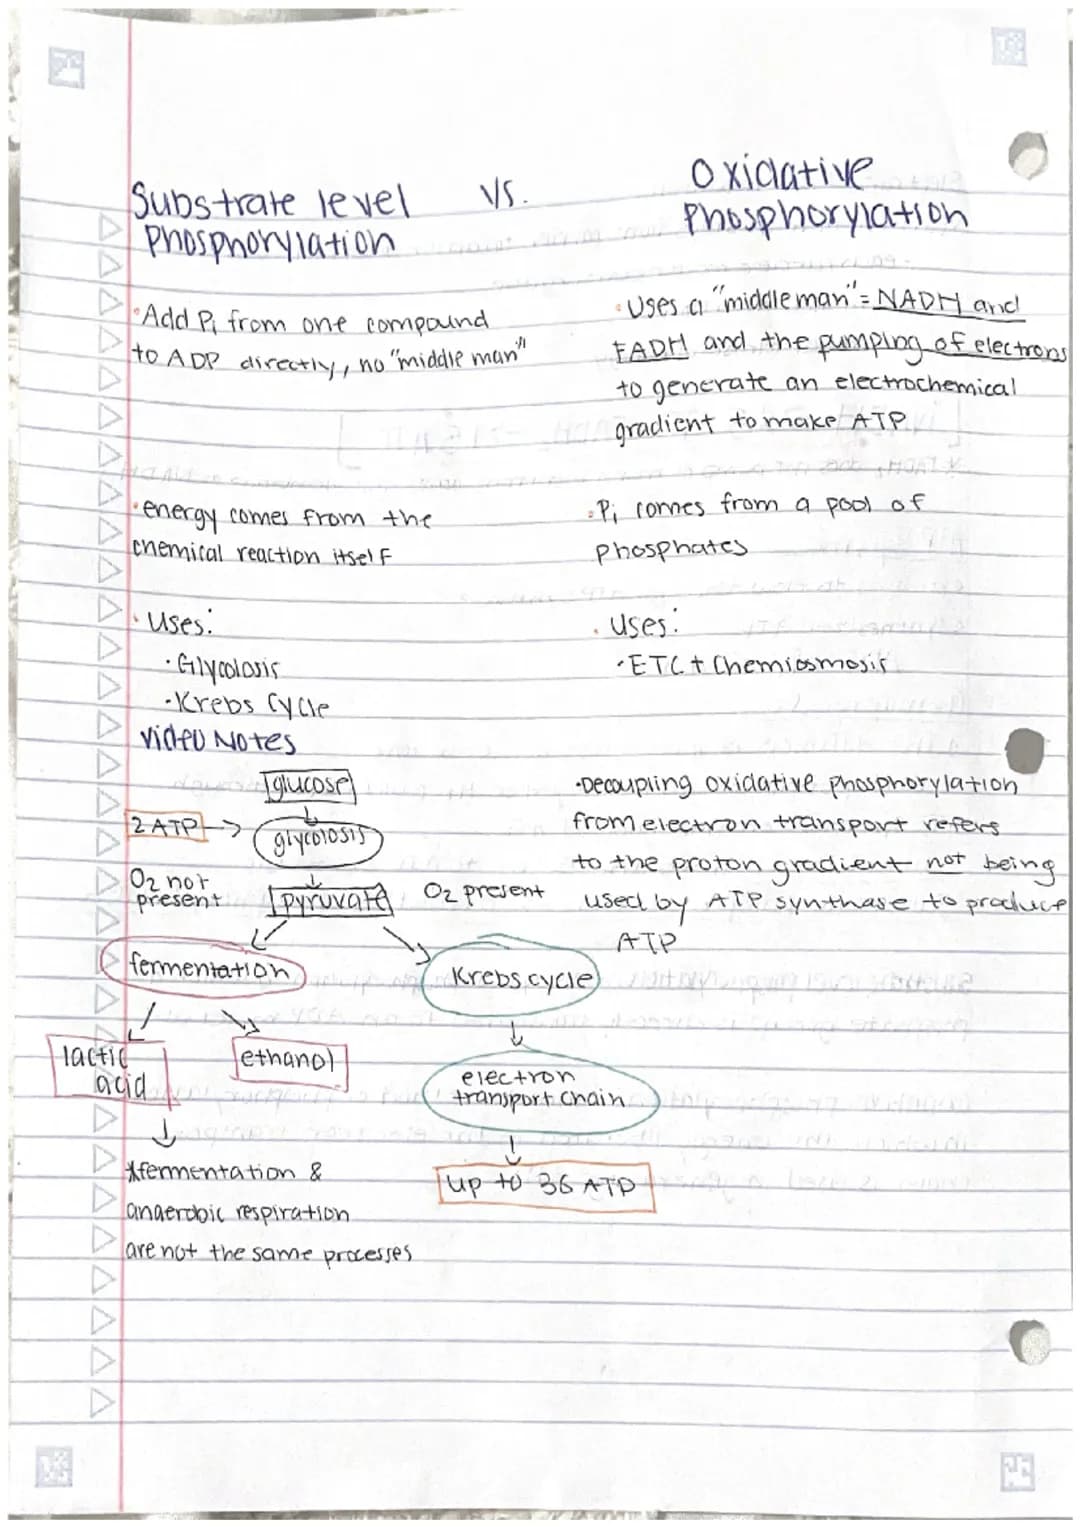 Substrate level Phosphorylation
vs.
Oxidative Phosphorylation
•Add Pi from one compound
to ADP directly, no "middle man"
•Uses a "middle man" = NADH and
FADH and the pumping of electrons
to generate an electrochemical
gradient to make ATP
•energy comes from the
chemical reaction itself
•Pi comes from a pool of
phosphates
•Uses:
•Glycolosis
•Krebs Cycle
•Uses:
•ETC + Chemiosmosis
Video Notes
glucose
2 ATP →
glycolosis
O2 not
present
pyruvate
O2 present
fermentation
Krebs cycle
lactic
acid
ethanol
electron
transport chain
up to 36 ATP
*fermentation &
anaerobic respiration
are not the same processes
•Decoupling oxidative phosphorylation
from electron transport refers
to the proton gradient not being
used by ATP synthase to produce
ATP